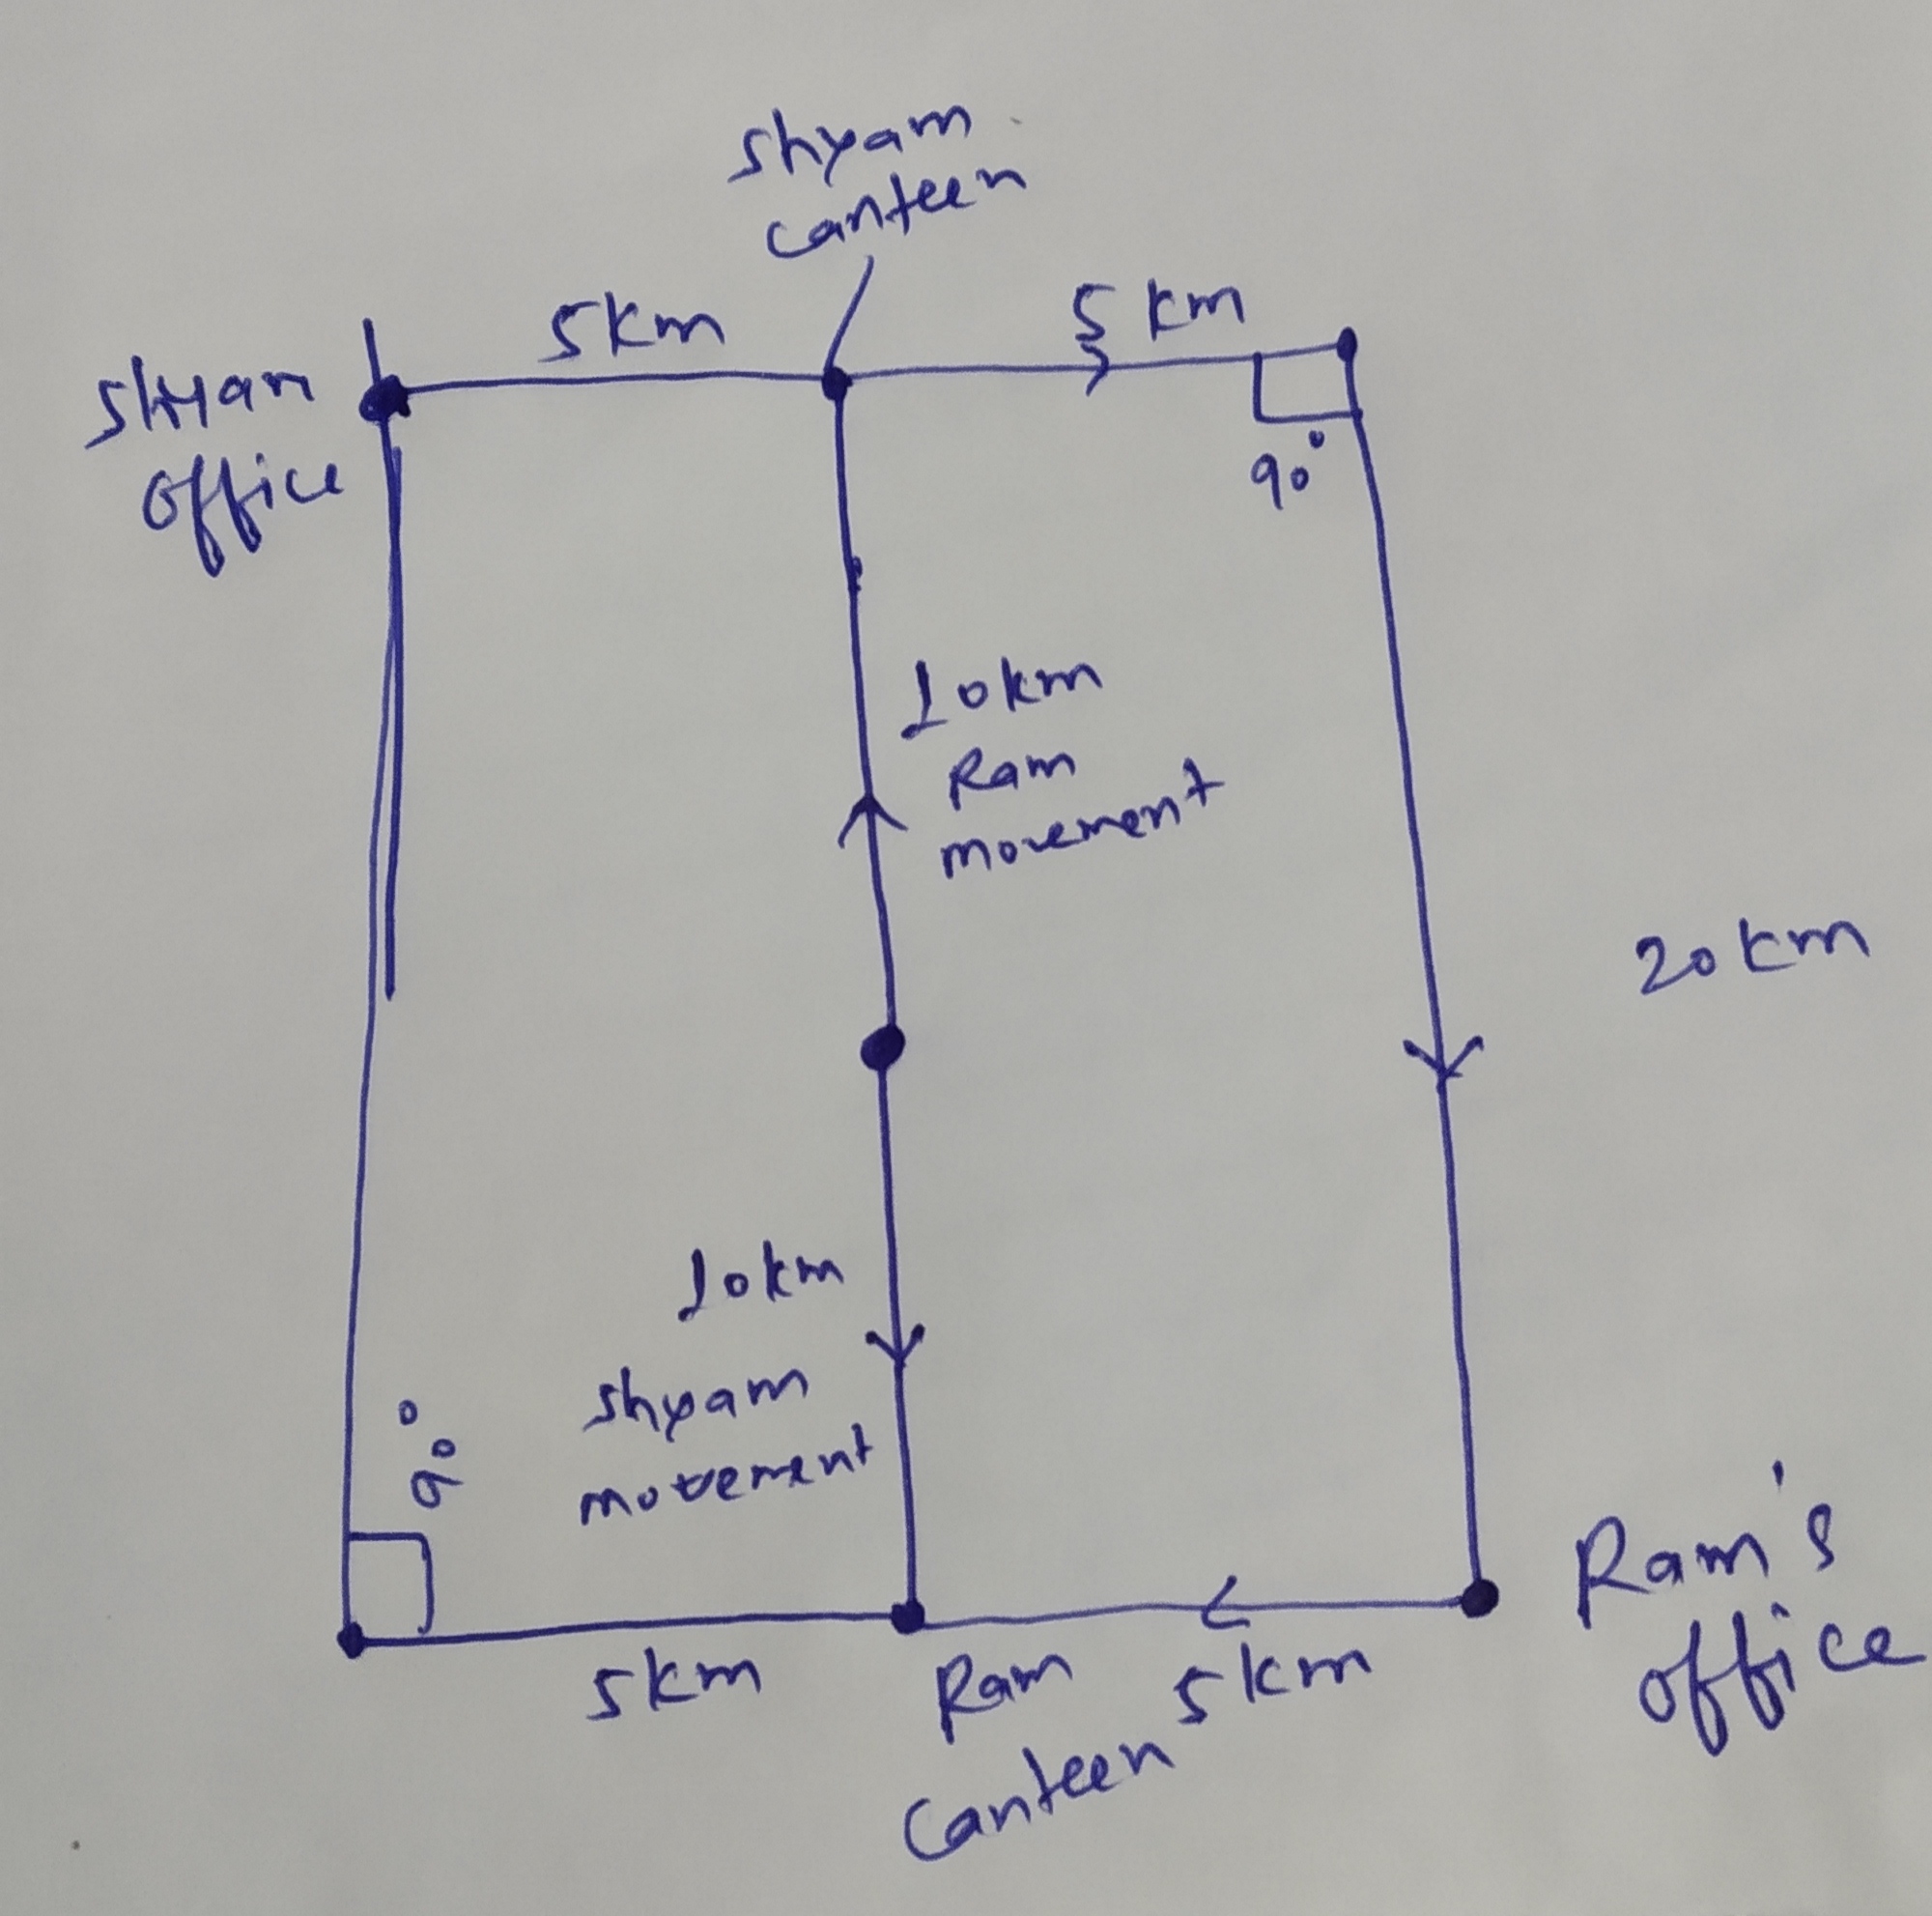 shyam
canteen
5km
5 km
Shyam
office
90°
10km
Ram
movement
20 km
10km
shyam
movement
90°
Ram's
office
5km
Ram
canteen
5km